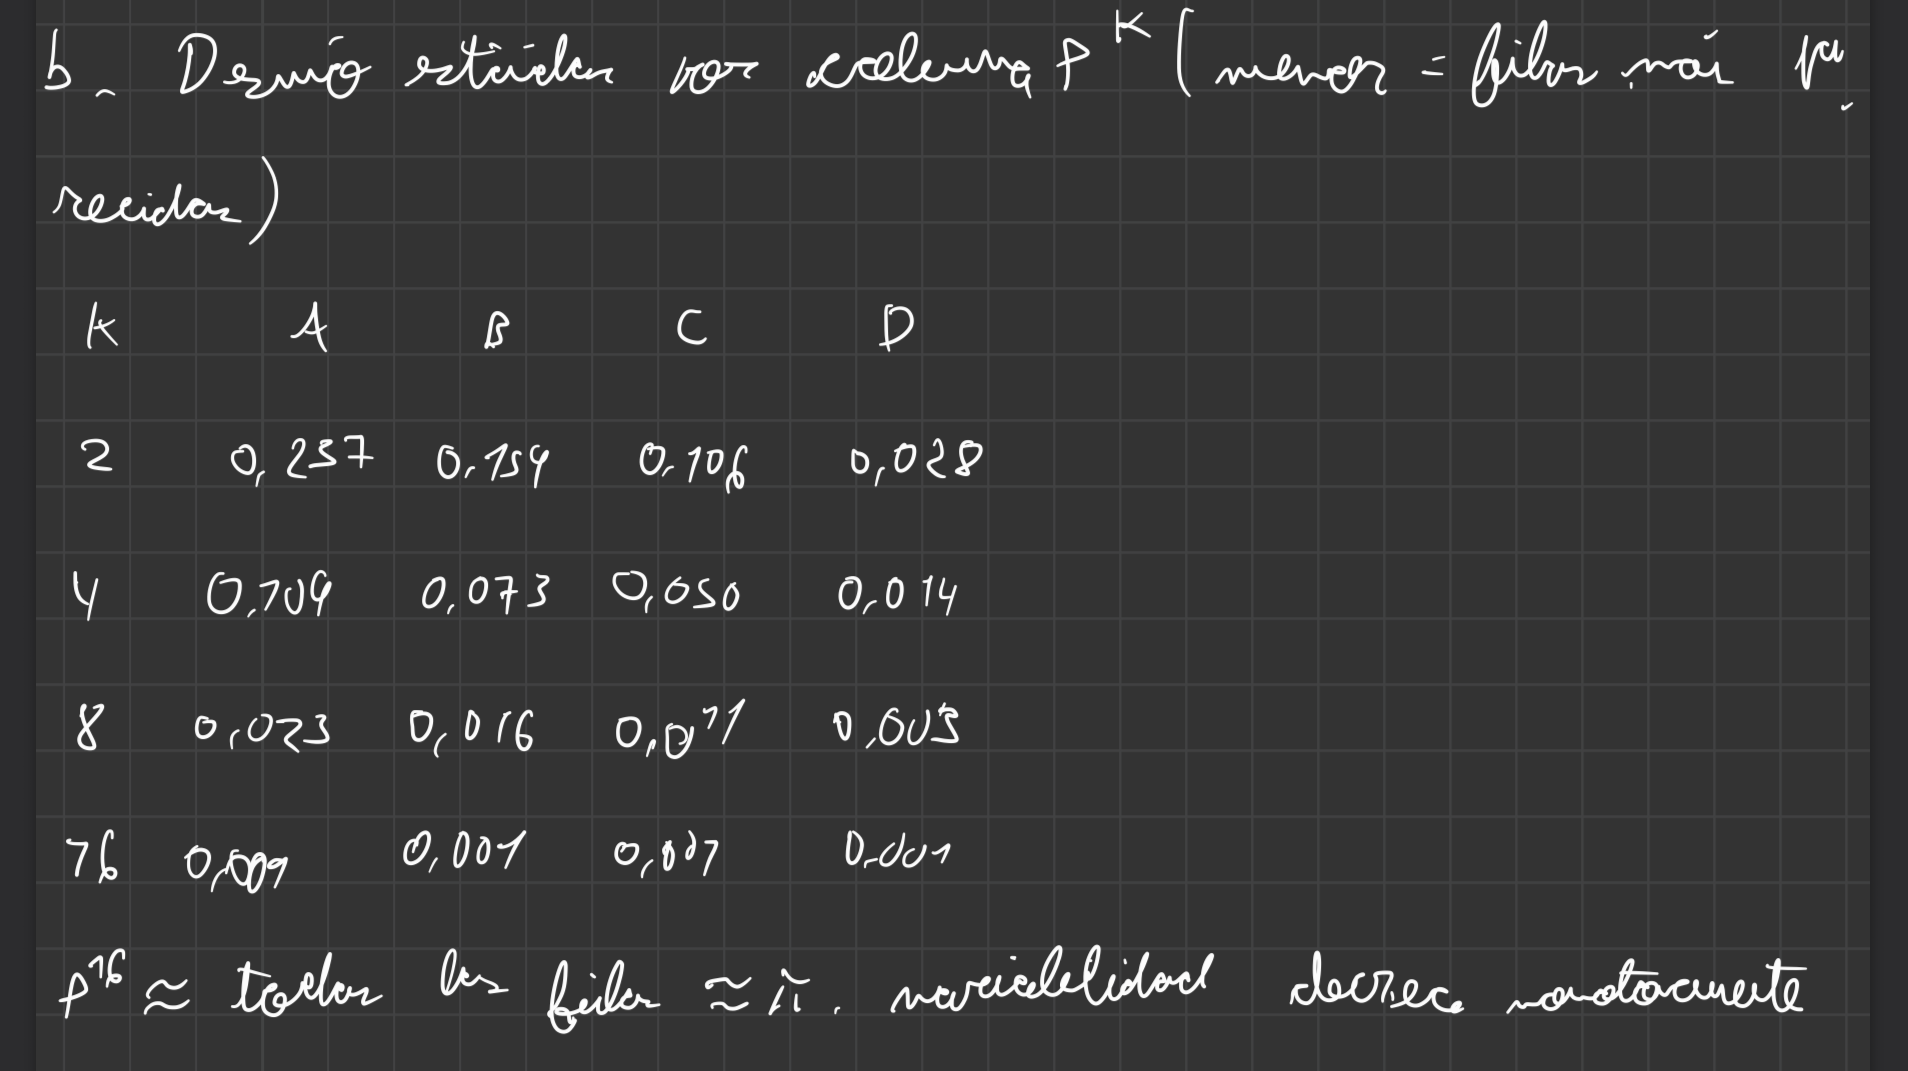 b. Desvío estándar por columna P^K (menor = filas más pa
recidas)
K A B C D
2 0,237 0,159 0,106 0,028
4 0,109 0,073 0,050 0,014
8 0,023 0,016 0,011 0,003
16 0,009 0,001 0,001 0,001
P^16 ≈ todas las filas ≈ π. variabilidad decrece monotonamente